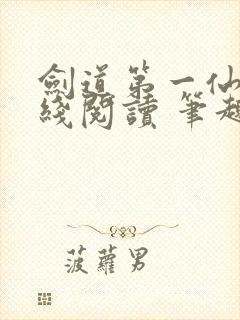 劍道第一仙
綫閱讀 筆趣
菠蘿男